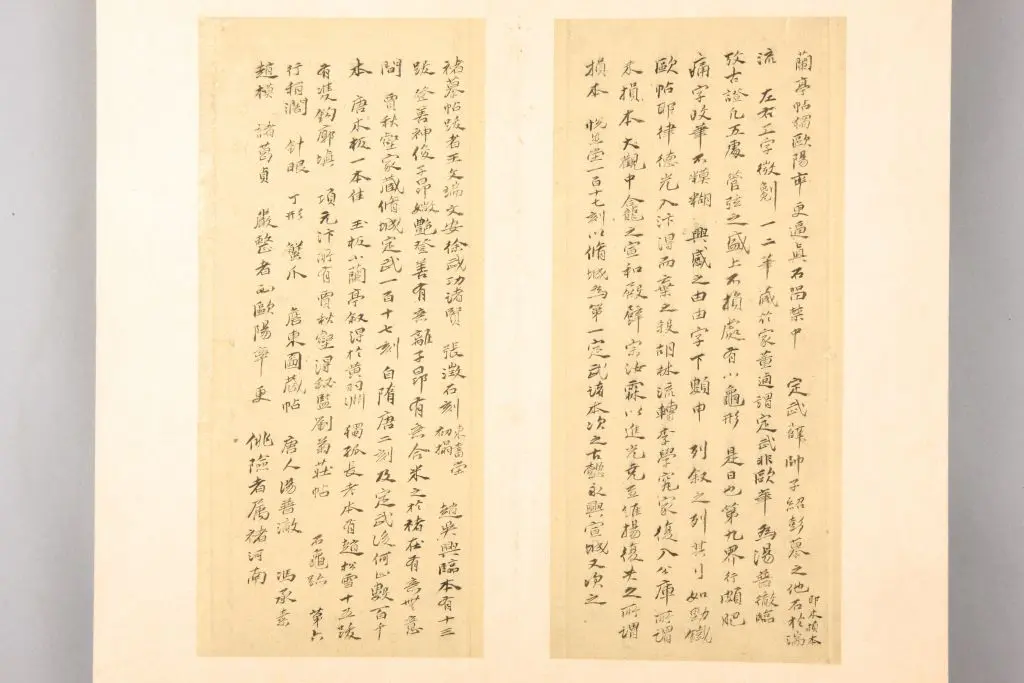 蘭亭帖獨歐陽率更逼真石留禁中 定武薛師子紹彭摹之他石於湍
即未損本
流 左右工字微刻一二筆 藏於家董逌謂定武非歐筆為湯普徹臨
攷古證凡五處 管弦之盛上不損處有小龜形 是日也第九界行頗肥
痛字改筆不糢糊 興感之由由字下類申 列叙之列其刂如勁鐵
歐帖耶律德光入汴得而棄之投胡林流轉李學究家復入公庫所謂
未損本 大觀中龕之宣和殿壁 宗汝霖以進光堯至維揚復失之所謂
損本 悅生堂一百十七刻以脩城為第一定武諸本次之古懿永興宣城又次之
褚摹帖跋者王文端文安徐武功諸賢 張澂石刻
東書堂初搨
趙吳興臨本有十三
跋登善神俊子昂嫩艷登善有無離子昂有無合米之於褚在有無無意
間 賈秋壑家藏脩城定武一百十七刻自隋唐二刻及定武後何止數百千
本 唐木板一本佳 玉板小蘭亭叙得於黄羽淵 獨孤長老本有趙松雪十五跋
有雙鈎廓填 項元汴所有賈秋壑得秘監劉菊莊帖 石龜跡 第六
行稍濶 針眼 丁形 蟹爪 詹東圖藏帖 唐人湯普澈 馮承素
趙模 諸葛貞 嚴整者西歐陽率更 佻險者属褚河南